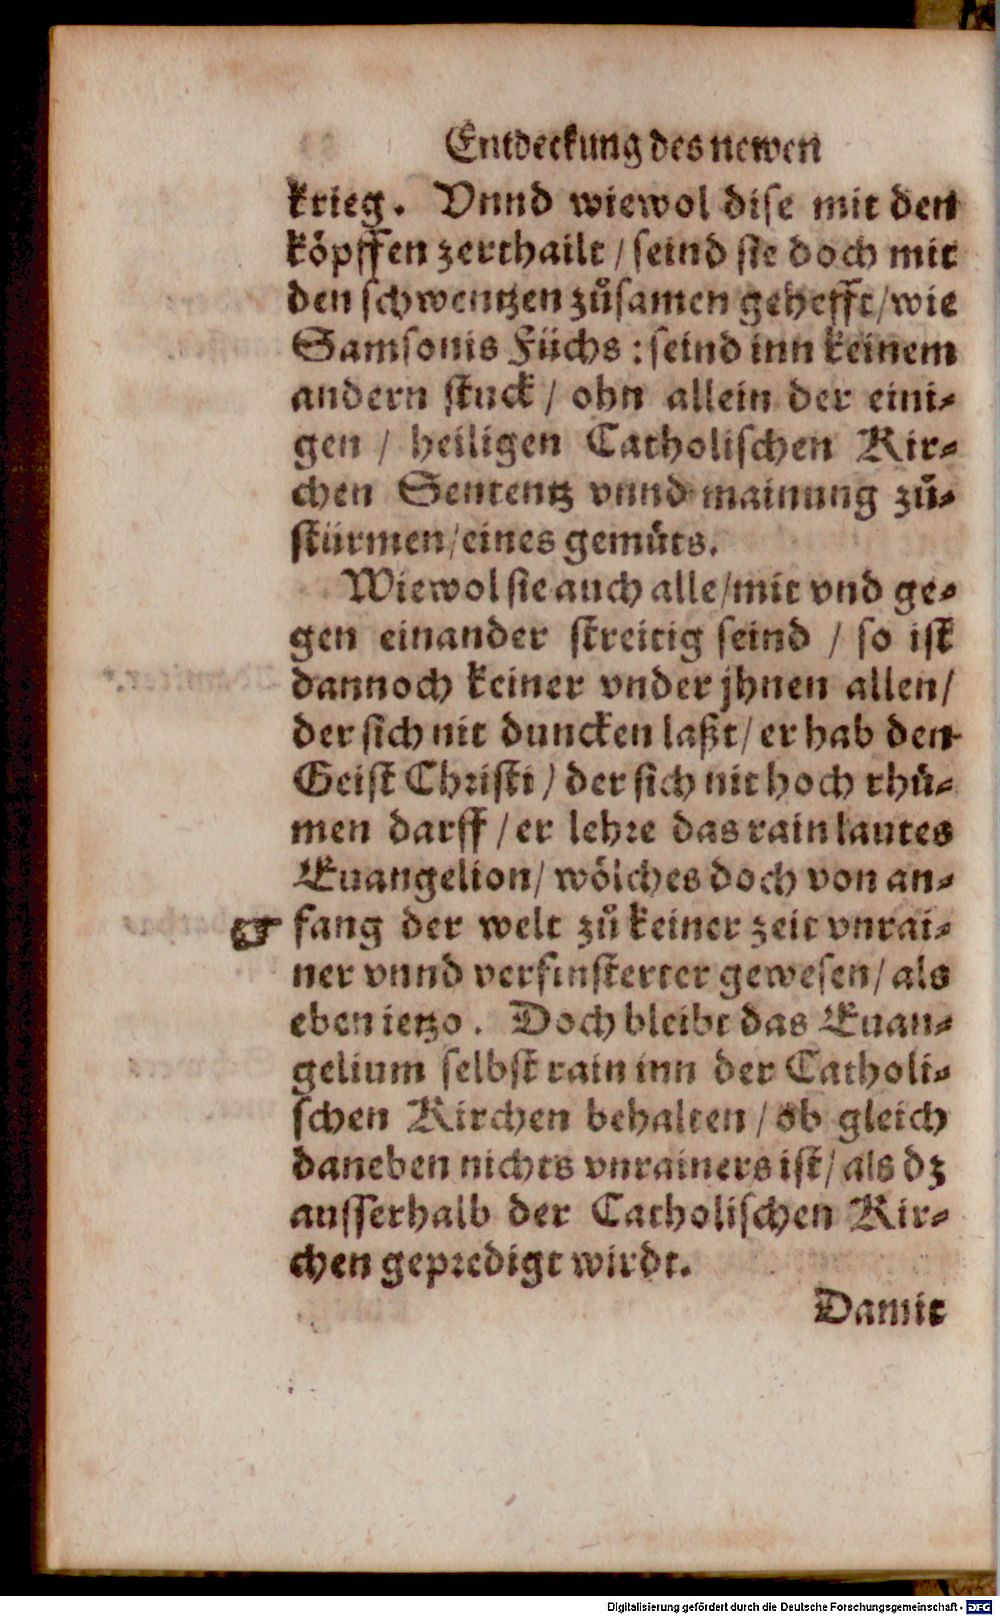 Entdeckung des newen
krieg. Vnnd wiewol dise mit den
köpffen zerthailt / seind sie doch mit
den schwentzen zůsamen gehefft / wie
Samsonis Füchs : seind inn keinem
andern stuck / ohn allein der eini-
gen / heiligen Catholischen Kir-
chen Sententz vnnd mainung zů-
stürmen / eines gemůts.
Wiewol sie auch alle / mit vnd ge-
gen einander streitig seind / so ist
dannoch keiner vnder jhnen allen /
der sich nit duncken laßt / er hab den
Geist Christi / der sich nit hoch rhů-
men darff / er lehre das rain lautes
Euangelion / wölches doch von an-
☞ fang der welt zů keiner zeit vnrai-
ner vnnd verfinsterter gewesen / als
eben ietzo. Doch bleibt das Euan-
gelium selbst rain inn der Catholi-
schen Kirchen behalten / ob gleich
daneben nichts vnrainers ist / als dz
ausserhalb der Catholischen Kir-
chen gepredigt wirdt.
Damit
Digitalisierung gefördert durch die Deutsche Forschungsgemeinschaft - DFG